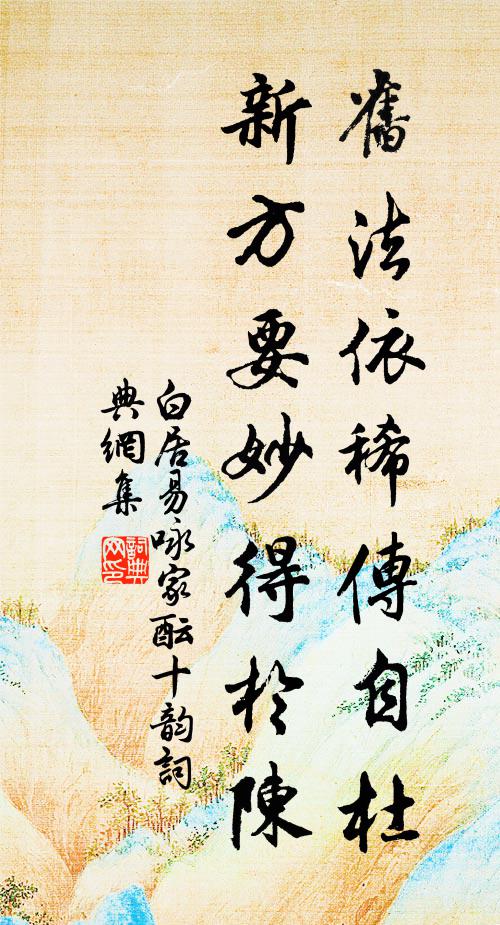 舊法依稀傳自杜
新方要妙得於陳
白居易咏家酝十韵詞
典網集
詞典
网印